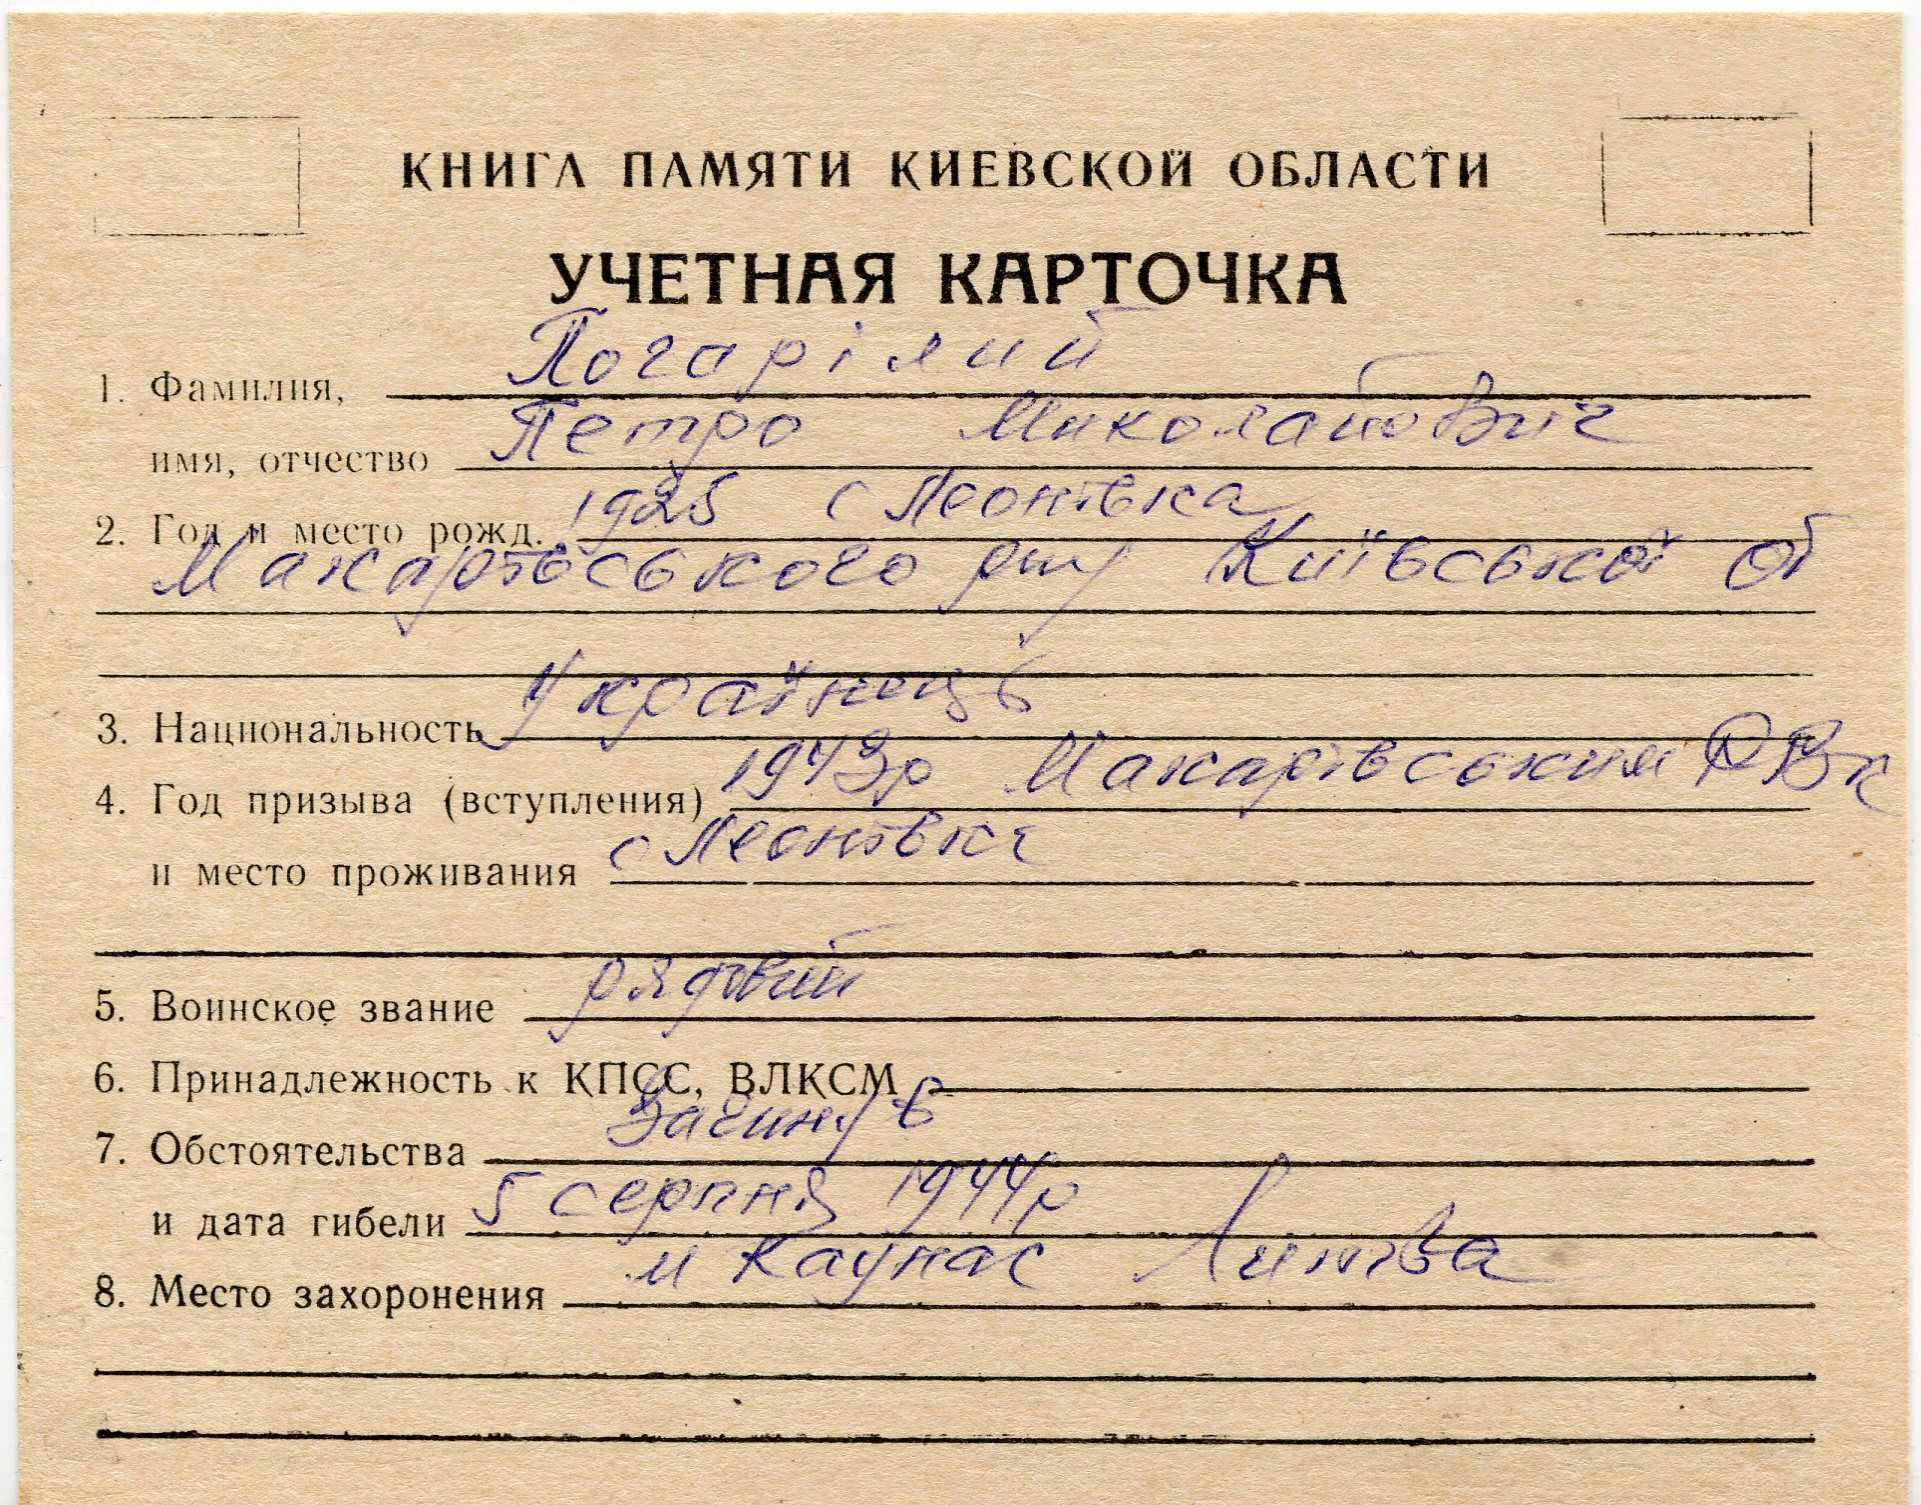 КНИГА ПАМЯТИ КИЕВСКОЙ ОБЛАСТИ
УЧЕТНАЯ КАРТОЧКА
1. Фамилия, Погарілий
имя, отчество Петро Миколайович
2. Год и место рожд. 1925 с Леонівка
Макарівського р-ну Київської об
3. Национальность Українець
4. Год призыва (вступления) 1943р Макарівським РВк
и место проживания с Леонівка
5. Воинское звание рядовий
6. Принадлежность к КПСС, ВЛКСМ
7. Обстоятельства Загинув
и дата гибели 5 серпня 1944р
8. Место захоронения м Каунас Литва